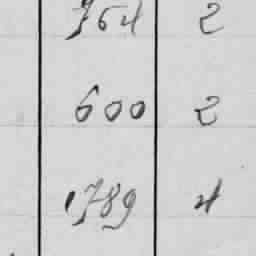 764 2
600 2
1789 4